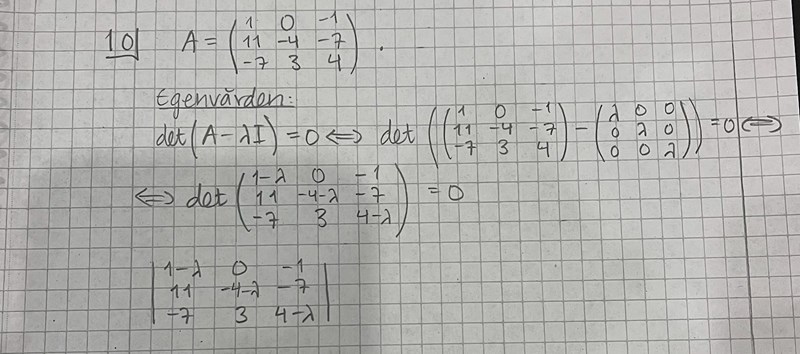 10 A = ( 1 0 -1
11 -4 -7
-7 3 4 ) .
Egenvärden:
det(A-λI)=0 ⟺ det ( ( 1 0 -1
11 -4 -7
-7 3 4 ) - ( λ 0 0
0 λ 0
0 0 λ ) ) = 0 ⟺
⟺ det ( 1-λ 0 -1
11 -4-λ -7
-7 3 4-λ ) = 0
| 1-λ 0 -1 |
| 11 -4-λ -7 |
| -7 3 4-λ |